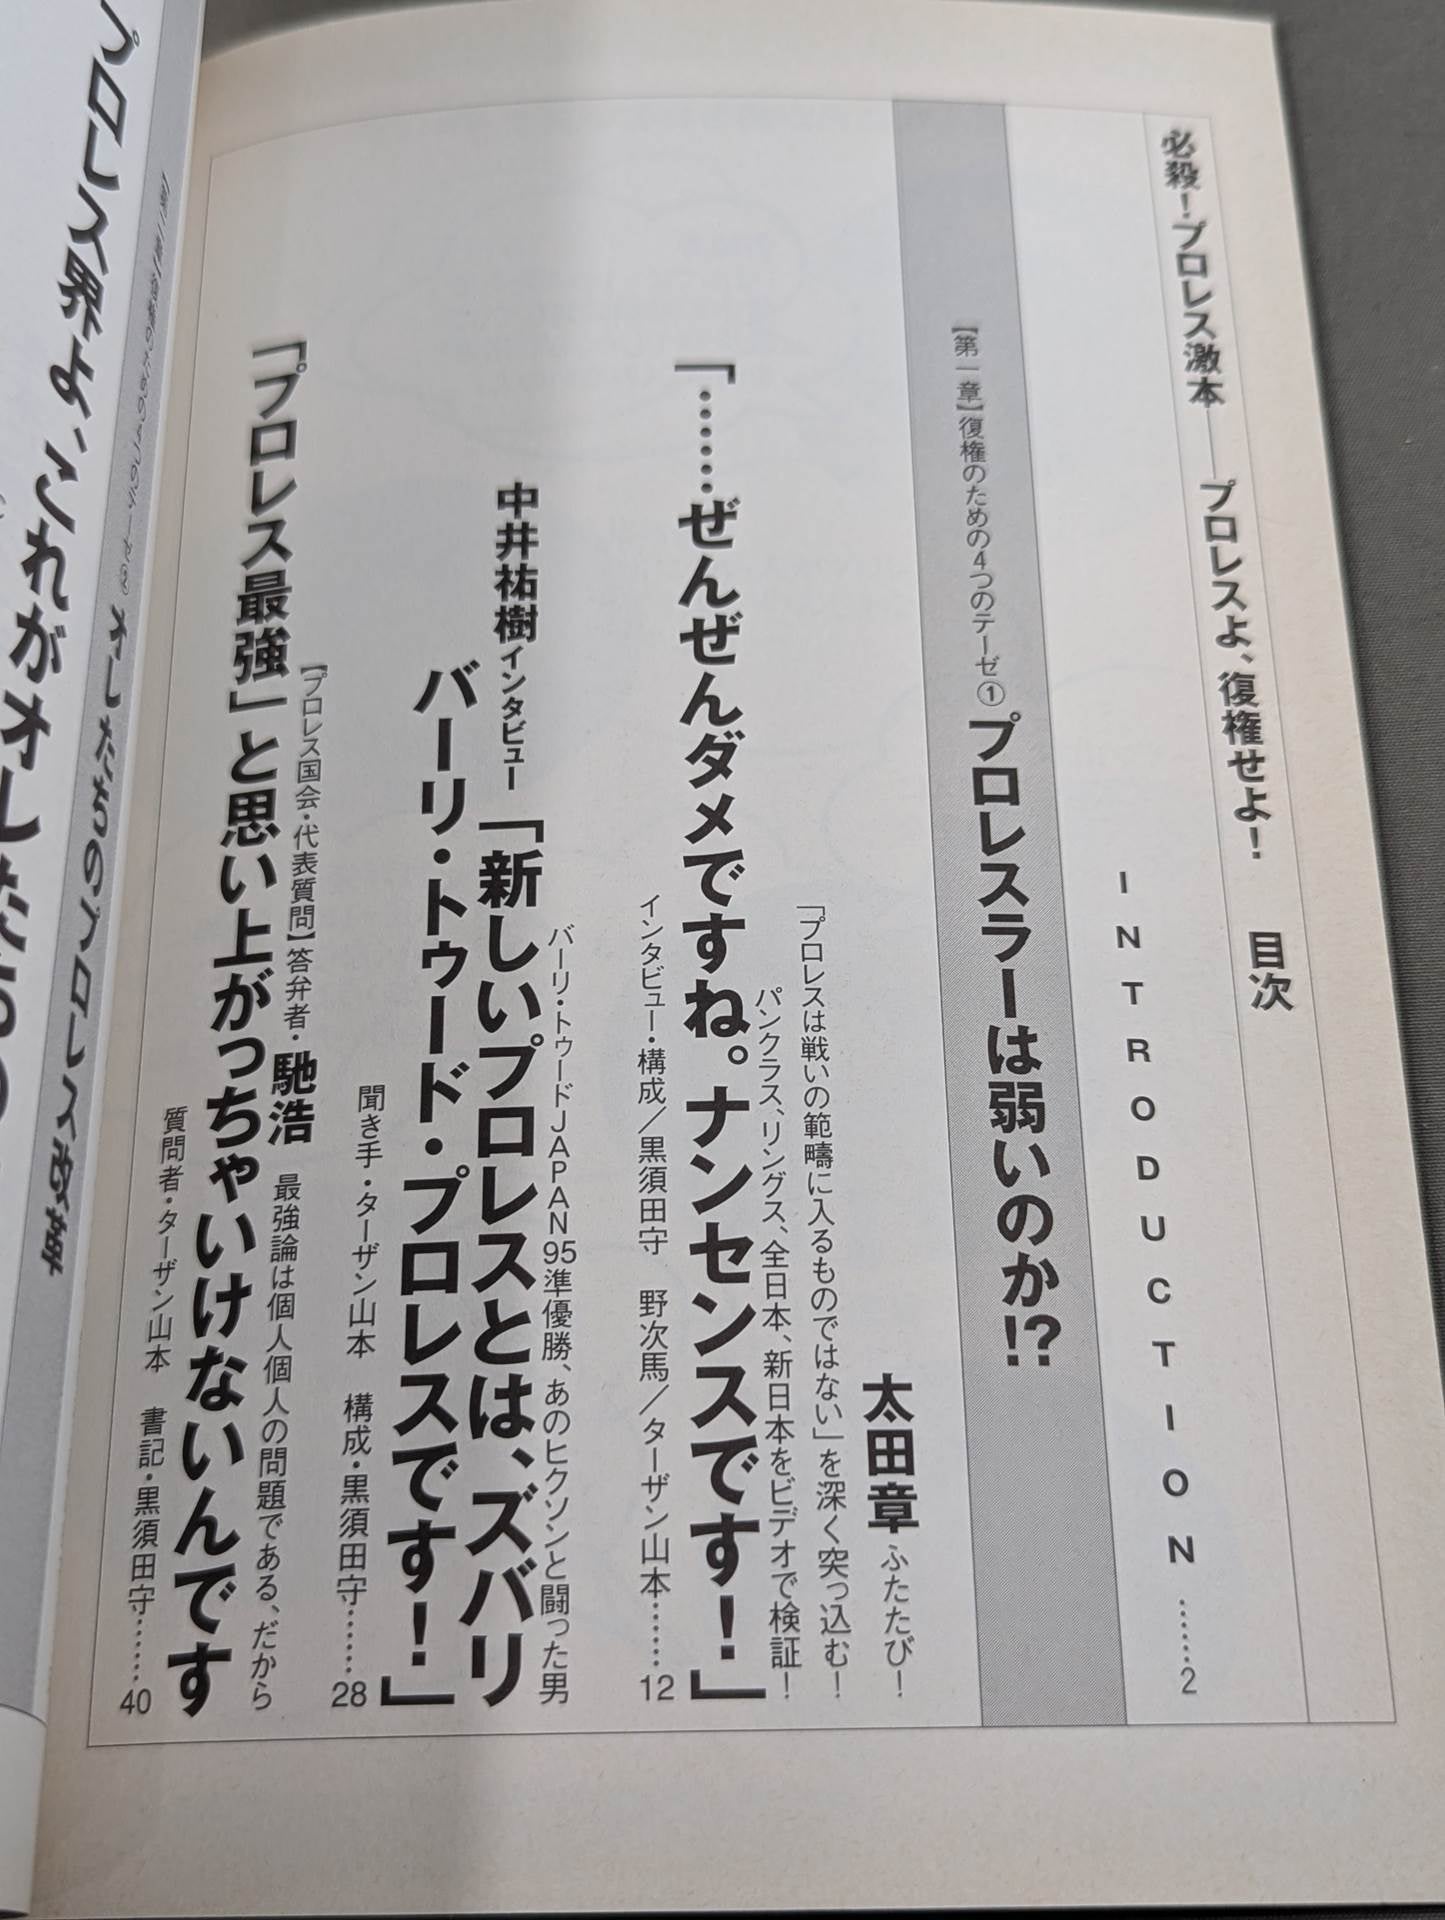 必殺!プロレス激本――プロレスよ、復権せよ! 目次
INTRODUCTION……2
【第一章】復権のための4つのテーゼ① プロレスラーは弱いのか!?
太田章 ふたたび!
「プロレスは戦いの範疇に入るものではない」を深く突っ込む!
パンクラス、リングス、全日本、新日本をビデオで検証!
「……ぜんぜんダメですね。ナンセンスです!」
インタビュー・構成/黒須田守 野次馬/ターザン山本……12
バーリ・トゥードJAPAN95準優勝、あのヒクソンと闘った男
中井祐樹インタビュー「新しいプロレスとは、ズバリ
バーリ・トゥード・プロレスです!」
聞き手・ターザン山本 構成・黒須田守……28
【プロレス国会・代表質問】答弁者・馳浩 最強論は個人個人の問題である、だから
「プロレス最強」と思い上がっちゃいけないんです
質問者・ターザン山本 書記・黒須田守……40
オレたちのプロレス改革
プロレス界よ、これがオレたちの